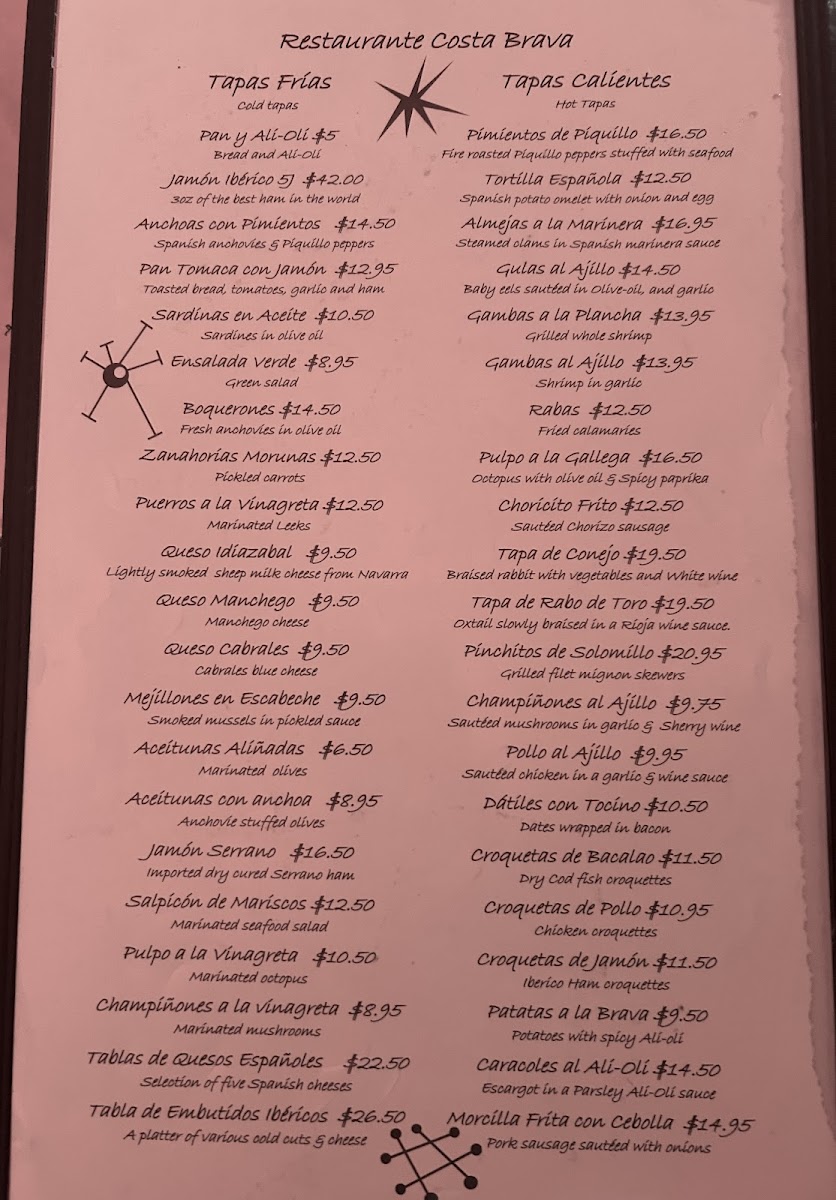 Restaurante Costa Brava
Tapas Frías
Cold tapas
Pan y Ali-Oli $5
Bread and Ali-Oli
Jamón Ibérico 5J $42.00
3oz of the best ham in the world
Anchoas con Pimientos $14.50
Spanish anchovies & Piquillo peppers
Pan Tomaca con Jamón $12.95
Toasted bread, tomatoes, garlic and ham
Sardinas en Aceite $10.50
Sardines in olive oil
Ensalada Verde $8.95
Green salad
Boquerones $14.50
Fresh anchovies in olive oil
Zanahorias Morunas $12.50
Pickled carrots
Puerros a la Vinagreta $12.50
Marinated Leeks
Queso Idiazabal $9.50
Lightly smoked sheep milk cheese from Navarra
Queso Manchego $9.50
Manchego cheese
Queso Cabrales $9.50
Cabrales blue cheese
Mejillones en Escabeche $9.50
Smoked mussels in pickled sauce
Aceitunas Aliñadas $6.50
Marinated olives
Aceitunas con anchoa $8.95
Anchovie stuffed olives
Jamón Serrano $16.50
Imported dry cured Serrano ham
Salpicón de Mariscos $12.50
Marinated seafood salad
Pulpo a la Vinagreta $10.50
Marinated octopus
Champiñones a la vinagreta $8.95
Marinated mushrooms
Tablas de Quesos Españoles $22.50
Selection of five Spanish cheeses
Tabla de Embutidos Ibéricos $26.50
A platter of various cold cuts & cheese
Tapas Calientes
Hot Tapas
Pimientos de Piquillo $16.50
Fire roasted Piquillo peppers stuffed with seafood
Tortilla Española $12.50
Spanish potato omelet with onion and egg
Almejas a la Marinera $16.95
Steamed clams in Spanish marinera sauce
Gulas al Ajillo $14.50
Baby eels sautéed in Olive-oil, and garlic
Gambas a la Plancha $13.95
Grilled whole shrimp
Gambas al Ajillo $13.95
Shrimp in garlic
Rabas $12.50
Fried calamaries
Pulpo a la Gallega $16.50
Octopus with olive oil & Spicy paprika
Choricito Frito $12.50
Sautéed Chorizo sausage
Tapa de Conejo $19.50
Braised rabbit with vegetables and White wine
Tapa de Rabo de Toro $19.50
Oxtail slowly braised in a Rioja wine sauce.
Pinchitos de Solomillo $20.95
Grilled filet mignon skewers
Champiñones al Ajillo $9.75
Sautéed mushrooms in garlic & Sherry wine
Pollo al Ajillo $9.95
Sautéed chicken in a garlic & wine sauce
Dátiles con Tocino $10.50
Dates wrapped in bacon
Croquetas de Bacalao $11.50
Dry Cod fish croquettes
Croquetas de Pollo $10.95
Chicken croquettes
Croquetas de Jamón $11.50
Iberico Ham croquettes
Patatas a la Brava $9.50
Potatoes with spicy Ali-oli
Caracoles al Ali-Oli $14.50
Escargot in a Parsley Ali-Oli sauce
Morcilla Frita con Cebolla $14.95
Pork sausage sautéed with onions